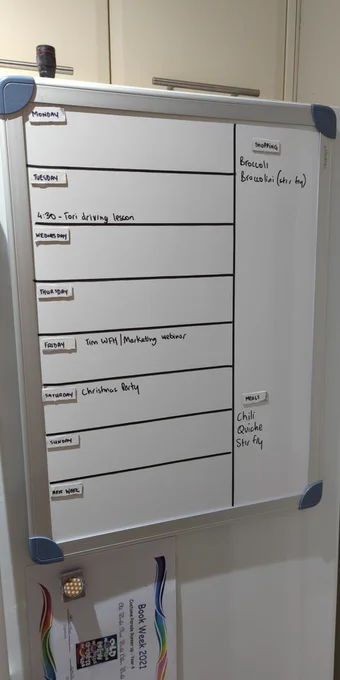 MONDAY
TUESDAY
4:30 - Tori driving lesson
WEDNESDAY
THURSDAY
FRIDAY Tim WFH / Marketing webinar
SATURDAY Christmas Party
SUNDAY
NEXT WEEK
SHOPPING
Broccoli
Broccolini (stir fry)
MEALS
Chili
Quiche
Stir fry
Book Week 2021
Costume Parade Runner Up - Year 4
OLD